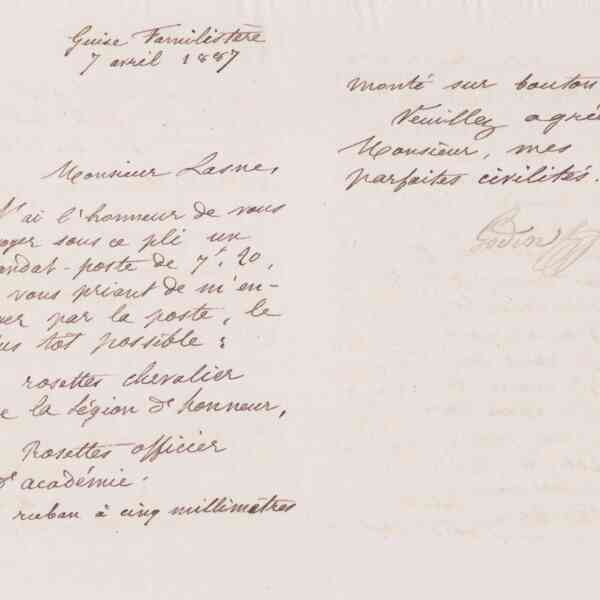 Guise Familistère
7 avril 1887
Monsieur Lasne,
J'ai l'honneur de vous
oyer sous ce pli un
andat-poste de 7f. 20,
vous priant de m'en-
yer par la poste, le
us tôt possible :
rosettes chevalier
e la Légion d'honneur,
Rosettes officier
d'académie.
ruban à cinq millimètres
monté sur bouton
Veuillez agré
Monsieur, mes
parfaites civilités.
Godin